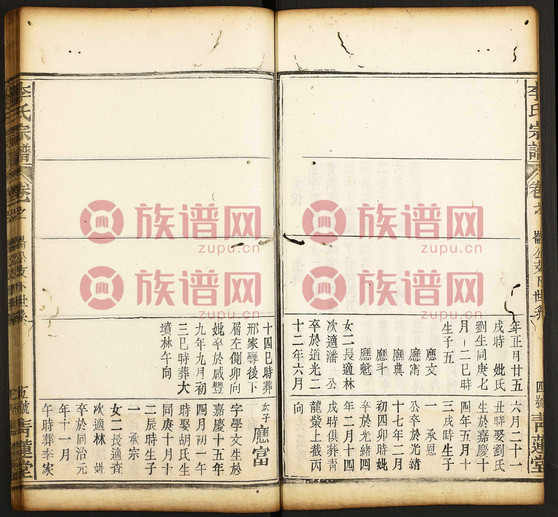 李氏宗譜
卷之
四號
青蓮堂
年正月廿五
戌時 妣氏
劉生同庚七
月一二巳時
生子五
應文
應甯
應典
應斗
應魁
女二長適林
次適潘 公
卒於道光二
十二年六月
六月二十一
丑時娶劉氏
生於嘉慶十
四年五月十
三戌時生子
一 承恩
公卒於光緒
十七年二月
初四卯時妣
卒於光緒四
年二月十四
戌時俱葬青
龍 上截丙
向
十四巳時葬
邢家 後下
層左側卯向
妣卒於咸豐
九年九月初
三巳時葬大
墳林午向
玄子 應富
字學文生於
嘉慶十五年
四月初一午
時娶胡氏生
同庚十月十
二辰時生子
一 承宗
女二長適 
次適林
卒於同治元
年十一月
午時葬李家
李氏宗譜
卷之
五號
青蓮堂
族谱网
zupu.cn
族谱网
zupu.cn